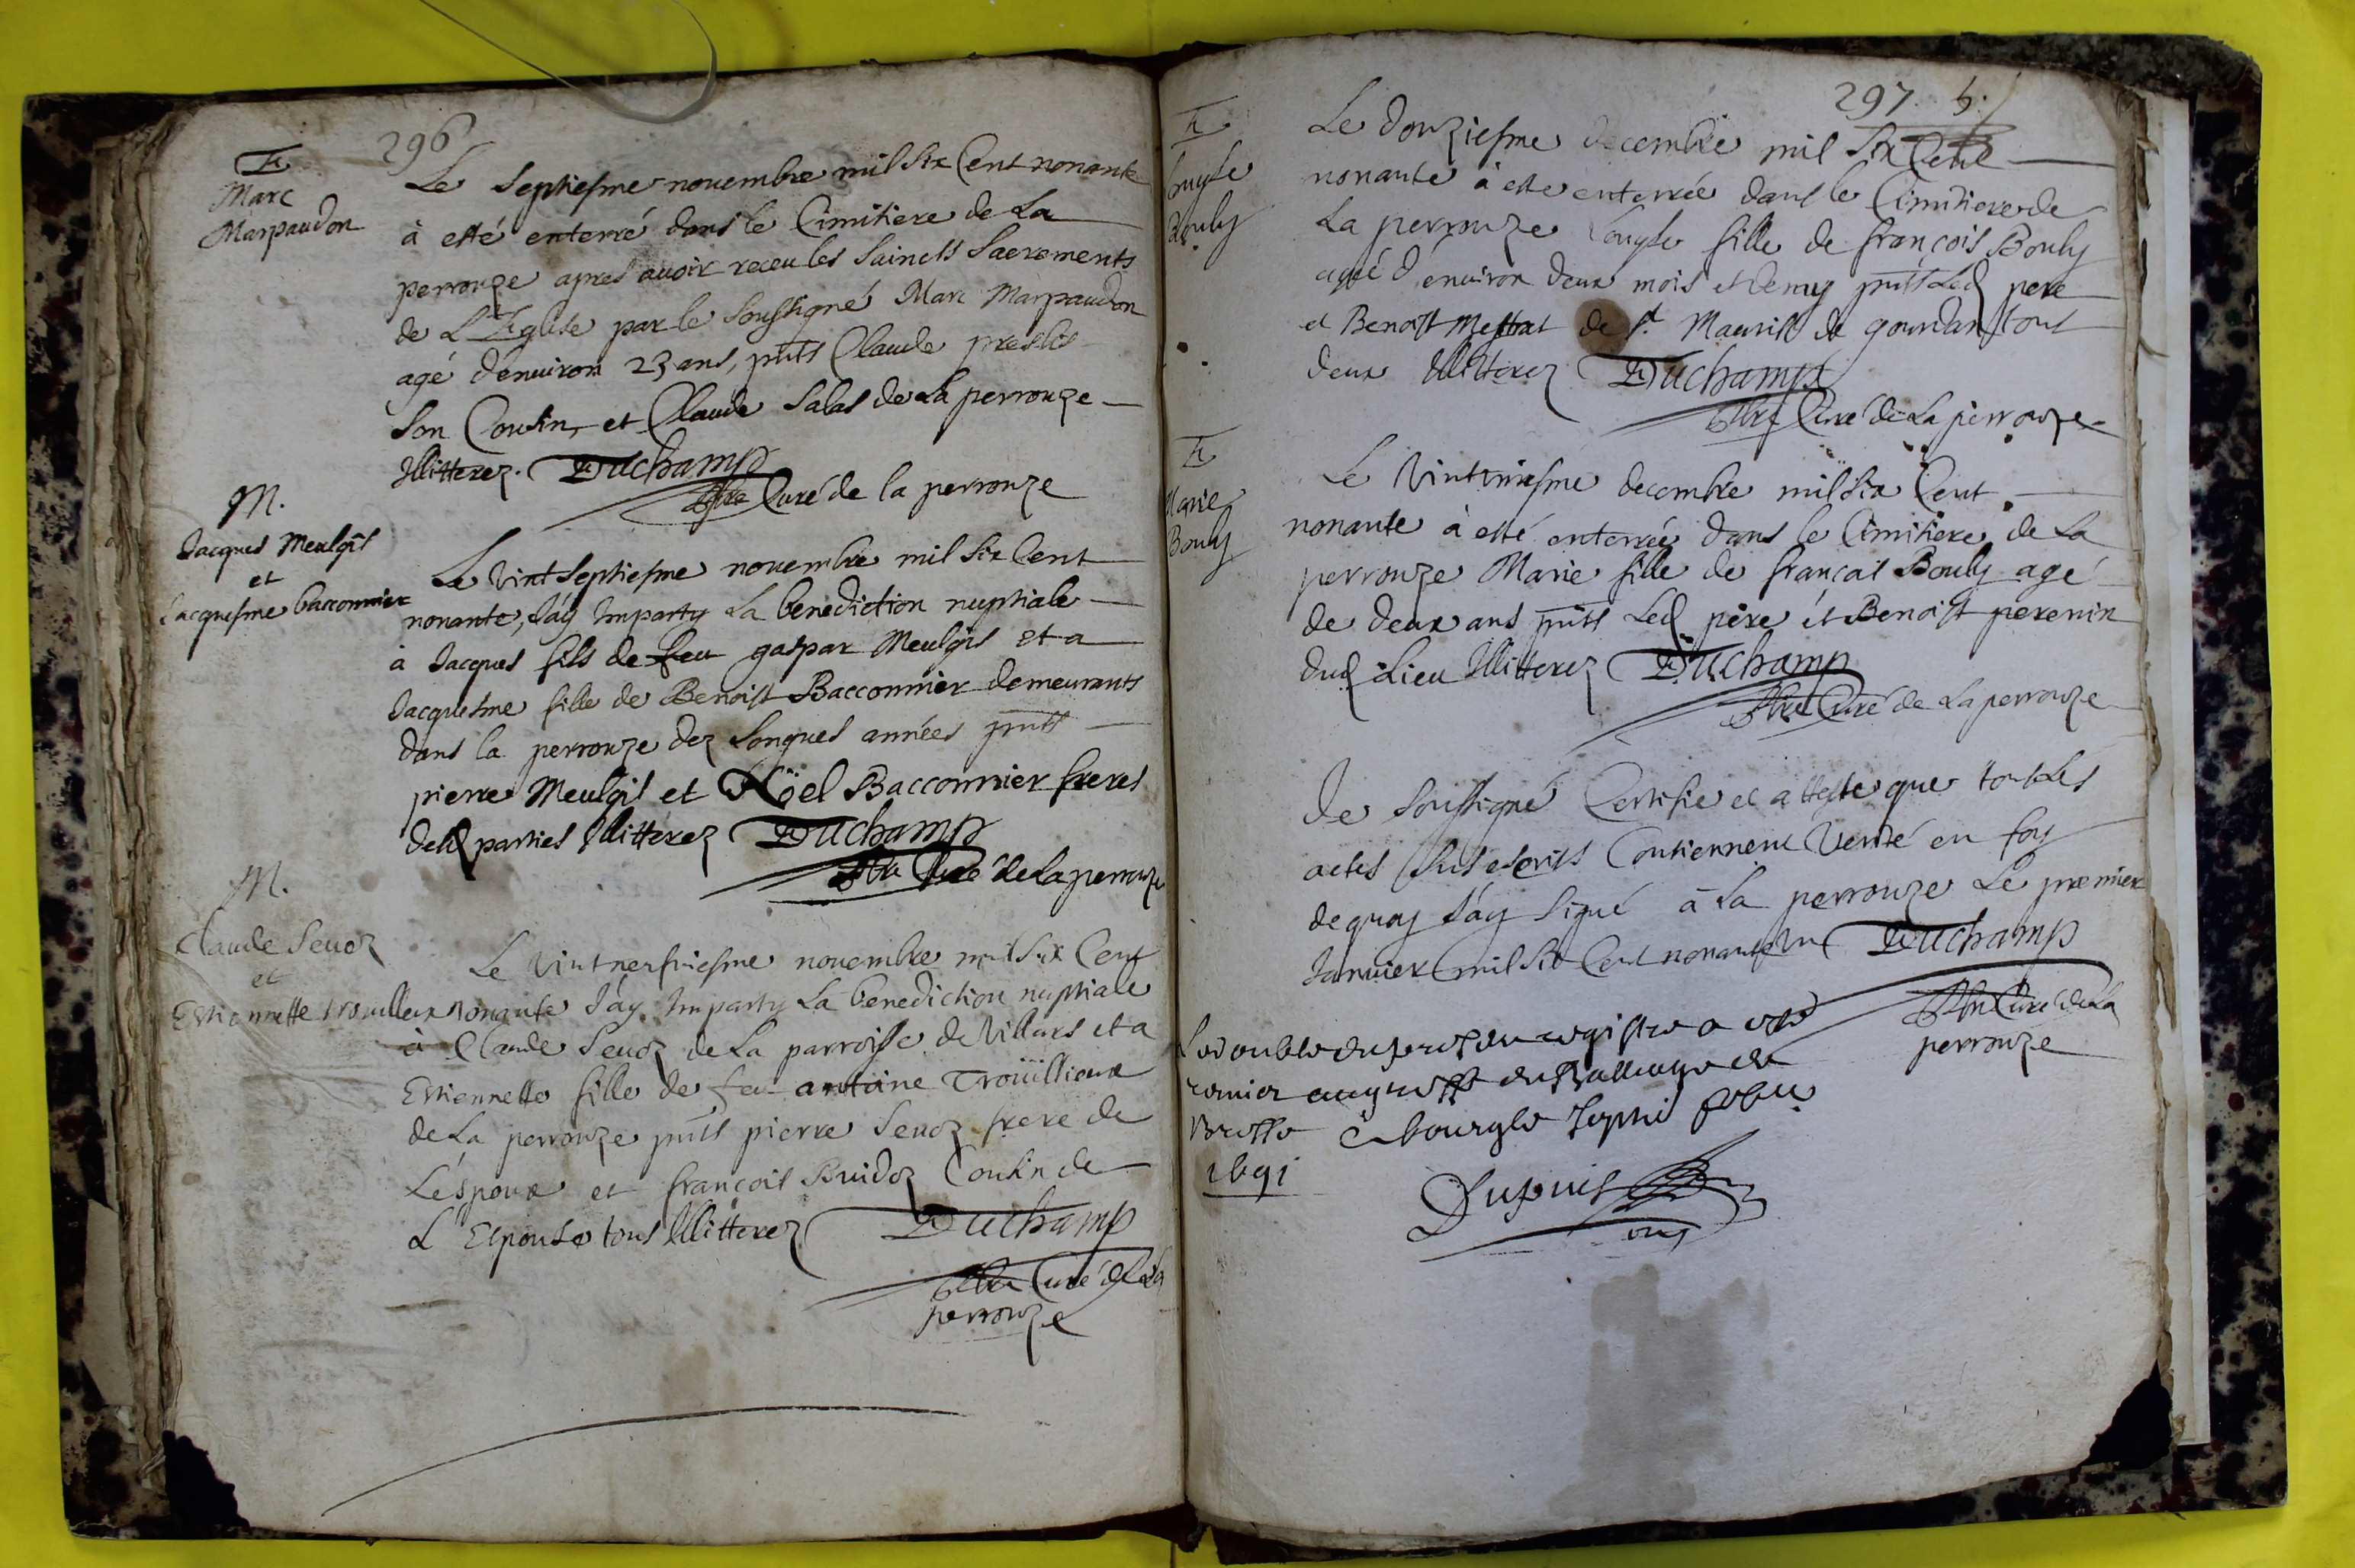 296
Marc
Marpaudon
Le septiesme novembre mil six Cent nonante
à esté enterré dans le Cimitiere de La
perrouze apres avoir receu les saincts Sacrements
de L'Eglise par le soussigné Marc Marpaudon
agé d'environ 23 ans, pnts Claude presles
son Cousin, et Claude Salas de La perrouze
Illitterez. Duchamp
pbre Curé de la perrouze
M.
Jacques Meulgis
et
Jacquesme baconnier
Le vint septiesme novembre mil six Cent
nonante, J'ay Imparty La benediction nuptiale
à Jacques fils de feu gaspar Meulgis et a
Jacquesme fille de Benoist Bacconnier demeurants
dans la perrouze dez longues années pnts
pierre Meulgis et Nöel Bacconnier freres
desd parties Illitterez Duchamp
pbre Curé de La perrouze
M.
Claude Sevoz
et
Estiennette trouilleux
Le vintneufviesme novembre mil six Cent
nonante J'ay Imparty La benediction nuptiale
à Claude Sevoz de La parroisse de Villars et a
Estiennette fille de feu antoine Trouïllieux
de La perrouze pnts pierre Sevoz frere de
L'éspoux et françois Buidoz Cousin de
L'Espouse tous Illitterez Duchamp
pbre Curé de La
perrouze
297
Louyse
Bouly
Le douziesme decembre mil six Cent
nonante à esté enterrée dans le Cimitiere de
La perrouze Louyse fille de françois Bouly
agé d'environ deux mois et demy pnts Led pere
et Benoist Mestrat de st. Maurise de gourdan tous
deux Illitterez Duchamp
pbre Curé de La perrouze
Marie
Bouly
Le vintuniesme decembre mil six Cent
nonante à esté enterrée dans le Cimitiere de La
perrouze Marie fille de françois Bouly agé
de deux ans pnts Led pere et Benoist perenin
dud Lieu Illitterez Duchamp
pbre Curé de La perrouze
Je soussigné Certifie et atteste que tous Les
actes sus escrits Contiennent Verité en foy
de quoy J'ay signé à La perrouze Le premier
Janvier mil six Cent nonante un Duchamp
pbre Curé de La
perrouze
Le double du present registre a esté
remis au greffe du Balliage de
Bresse a bourg le
1691
Dupuis